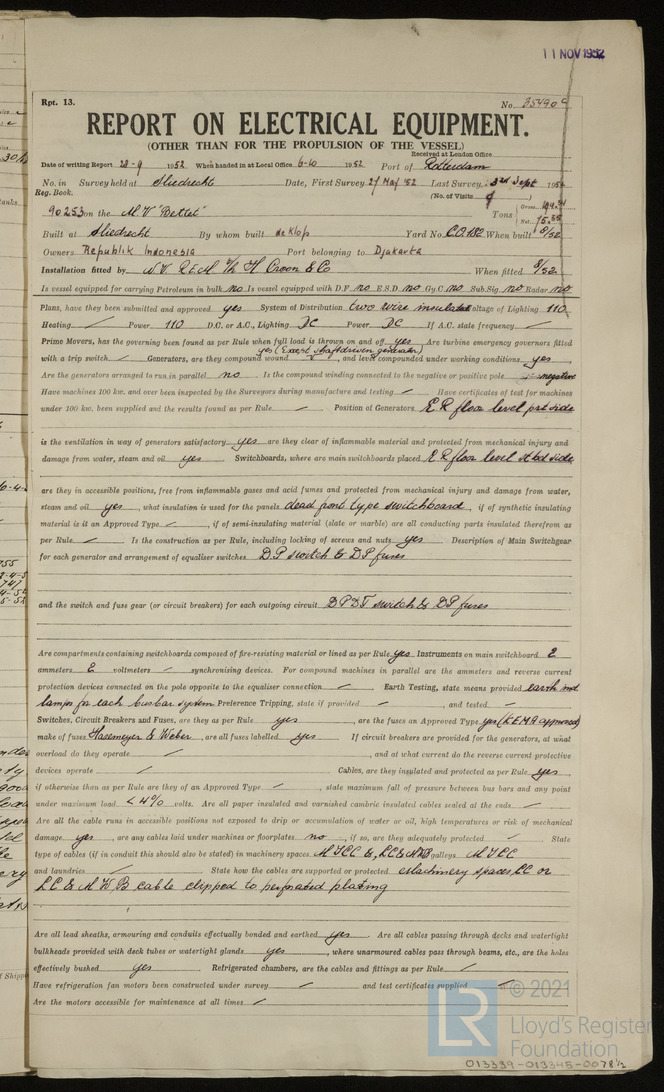 11 NOV 1952
Rpt. 13.
No. 35490C
REPORT ON ELECTRICAL EQUIPMENT.
(OTHER THAN FOR THE PROPULSION OF THE VESSEL)
Received at London Office
Date of writing Report 23-9 1952 When handed in at Local Office 6-10 1952 Port of Rotterdam
No. in Survey held at Sliedrecht Date, First Survey 27 May '52 Last Survey 3rd Sept 195
Reg. Book. (No. of Visits
90253 on the M.V "Bettet" Tons Gross Net
Built at Sliedrecht By whom built de Klop Yard No. C.O.182 When built 8/52
Owners Republik Indonesia Port belonging to Djakarta
Installation fitted by N.V. & Co When fitted 8/52
Is vessel equipped for carrying Petroleum in bulk no Is vessel equipped with D.F. no E.S.D. no Gy.C. no Sub.Sig. no Radar no
Plans, have they been submitted and approved yes System of Distribution two wire insulated Voltage of Lighting 110
Heating / Power 110 D.C. or A.C., Lighting DC Power DC If A.C. state frequency /
Prime Movers, has the governing been found as per Rule when full load is thrown on and off yes Are turbine emergency governors fitted
with a trip switch / Generators, are they compound wound yes (Except shaftdriven generator), and level compounded under working conditions yes
Are the generators arranged to run in parallel no Is the compound winding connected to the negative or positive pole negative
Have machines 100 kw. and over been inspected by the Surveyors during manufacture and testing / Have certificates of test for machines
under 100 kw. been supplied and the results found as per Rule / Position of Generators E R floor level port side
is the ventilation in way of generators satisfactory yes are they clear of inflammable material and protected from mechanical injury and
damage from water, steam and oil yes Switchboards, where are main switchboards placed E R floor level stbd side
are they in accessible positions, free from inflammable gases and acid fumes and protected from mechanical injury and damage from water,
steam and oil yes, what insulation is used for the panels dead front type switchboard, if of synthetic insulating
material is it an Approved Type /, if of semi-insulating material (slate or marble) are all conducting parts insulated therefrom as
per Rule / Is the construction as per Rule, including locking of screws and nuts yes Description of Main Switchgear
for each generator and arrangement of equaliser switches D.P switch & D.P fuses
and the switch and fuse gear (or circuit breakers) for each outgoing circuit DPDT switch & DP fuses
Are compartments containing switchboards composed of fire-resisting material or lined as per Rule yes Instruments on main switchboard 2
ammeters 2 voltmeters / synchronising devices. For compound machines in parallel are the ammeters and reverse current
protection devices connected on the pole opposite to the equaliser connection / Earth Testing, state means provided earth ind
lamps for each busbar system Preference Tripping, state if provided /, and tested /
Switches, Circuit Breakers and Fuses, are they as per Rule yes, are the fuses an Approved Type yes (KEMA approved)
make of fuses Hazemeyer & Weber, are all fuses labelled yes If circuit breakers are provided for the generators, at what
overload do they operate /, and at what current do the reverse current protective
devices operate / Cables, are they insulated and protected as per Rule yes,
if otherwise than as per Rule are they of an Approved Type /, state maximum fall of pressure between bus bars and any point
under maximum load <4% volts. Are all paper insulated and varnished cambric insulated cables sealed at the ends /
Are all the cable runs in accessible positions not exposed to drip or accumulation of water or oil, high temperatures or risk of mechanical
damage yes, are any cables laid under machines or floorplates no, if so, are they adequately protected / State
type of cables (if in conduit this should also be stated) in machinery spaces galleys
and laundries State how the cables are supported or protected Machinery spaces LC or
LC & A W B cable clipped to perforated plating
Are all lead sheaths, armouring and conduits effectually bonded and earthed yes Are all cables passing through decks and watertight
bulkheads provided with deck tubes or watertight glands yes, where unarmoured cables pass through beams, etc., are the holes
effectively bushed yes Refrigerated chambers, are the cables and fittings as per Rule /
Have refrigeration fan motors been constructed under survey / and test certificates supplied /
Are the motors accessible for maintenance at all times /
© 2021
Lloyd's Register
Foundation
013339-013345-0078 1/2